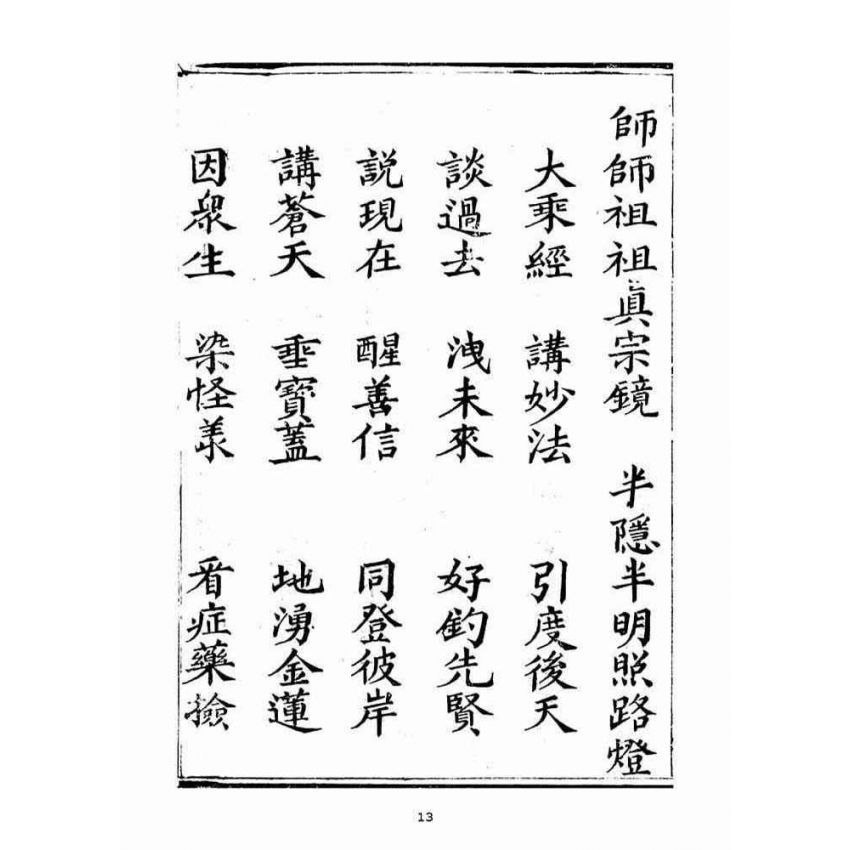 師師祖祖真宗鏡 半隱半明照路燈
大乘經 講妙法 引度後天
談過去 洩未來 好釣先賢
説現在 醒善信 同登彼岸
講蒼天 垂寶蓋 地湧金蓮
因衆生 染怪羕 看症藥撿
13